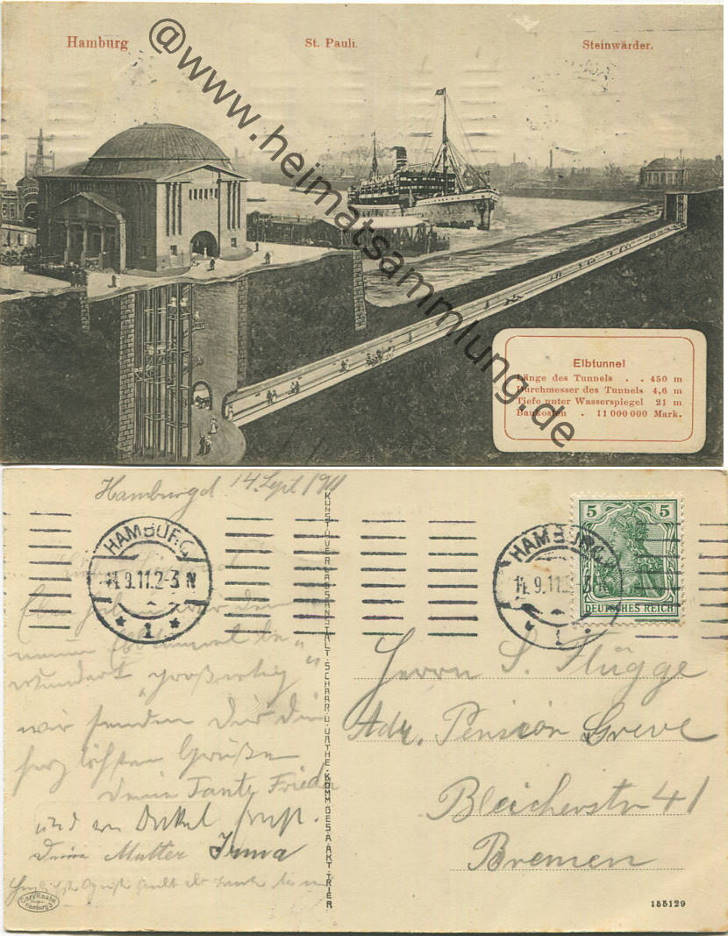 Hamburg St. Pauli. Steinwärder.
@www.heimatsammlung.de
Elbtunnel
Länge des Tunnels . . 450 m
Durchmesser des Tunnels 4,6 m
Tiefe unter Wasserspiegel 21 m
Baukosten . 11 000 000 Mark.
Hamburg d 14. Sept. 1911
HAMBURG
14.9.11.2-3 N
* 1 *
HAMBURG
14.9.11.2-3N
* 1
5 5
DEUTSCHES REICH
KUNST- U. VERLAGSANSTALT SCHAAR U. DATHE, KOMM. GES. A. AKT. TRIER
wundert "großartig"
wir senden Dir die
herzlichsten Grüße
Deine Tante Frieda
und Onkel
Deine Mutter Irma
Herrn S. Flügge
Adr. Pension Greve
Bleicherstr 41
Bremen
155129